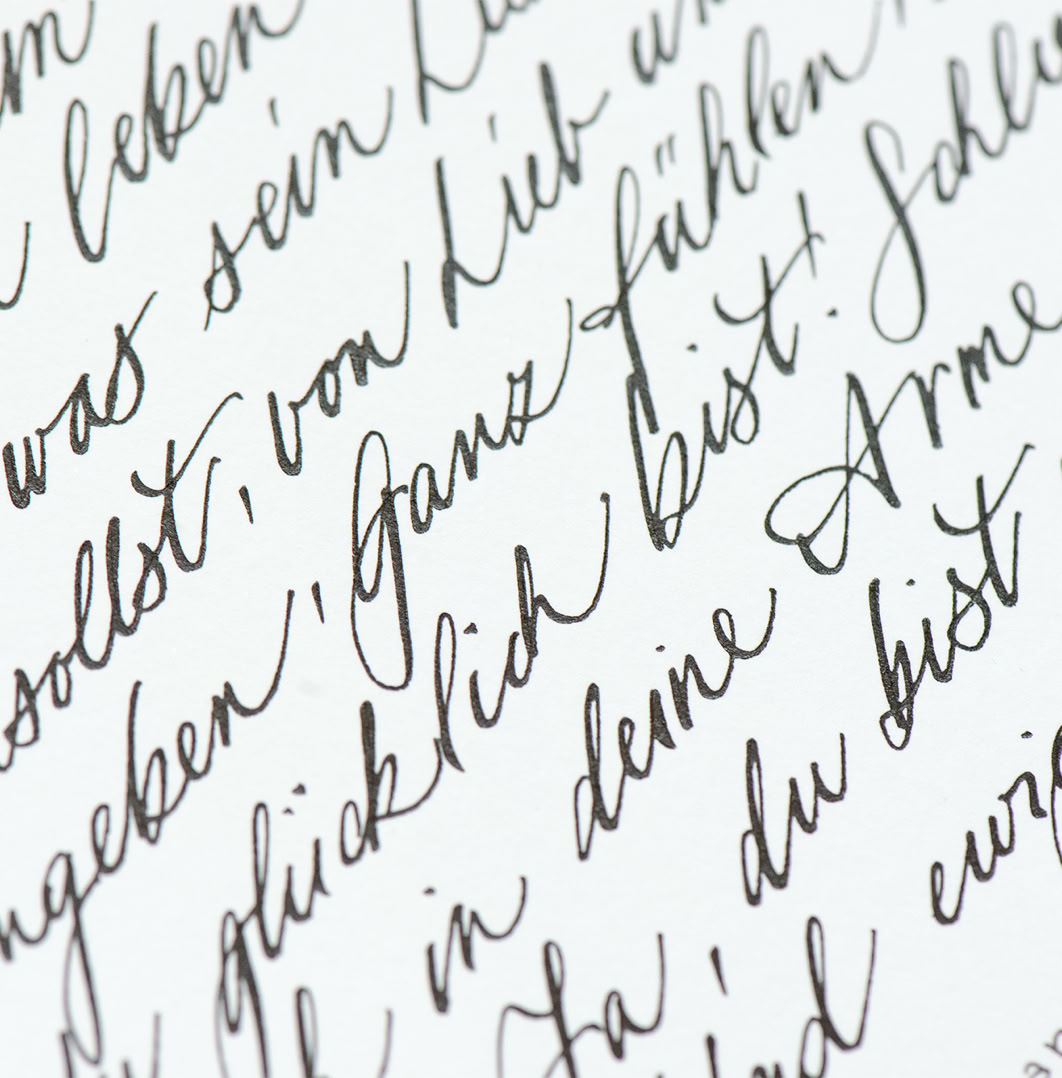 leben
was sein
sollst, von Lieb un
ngeben, Ganz fühlen
glücklich bist! Schlie
in deine Arme
Ja, du bist
nd ewig